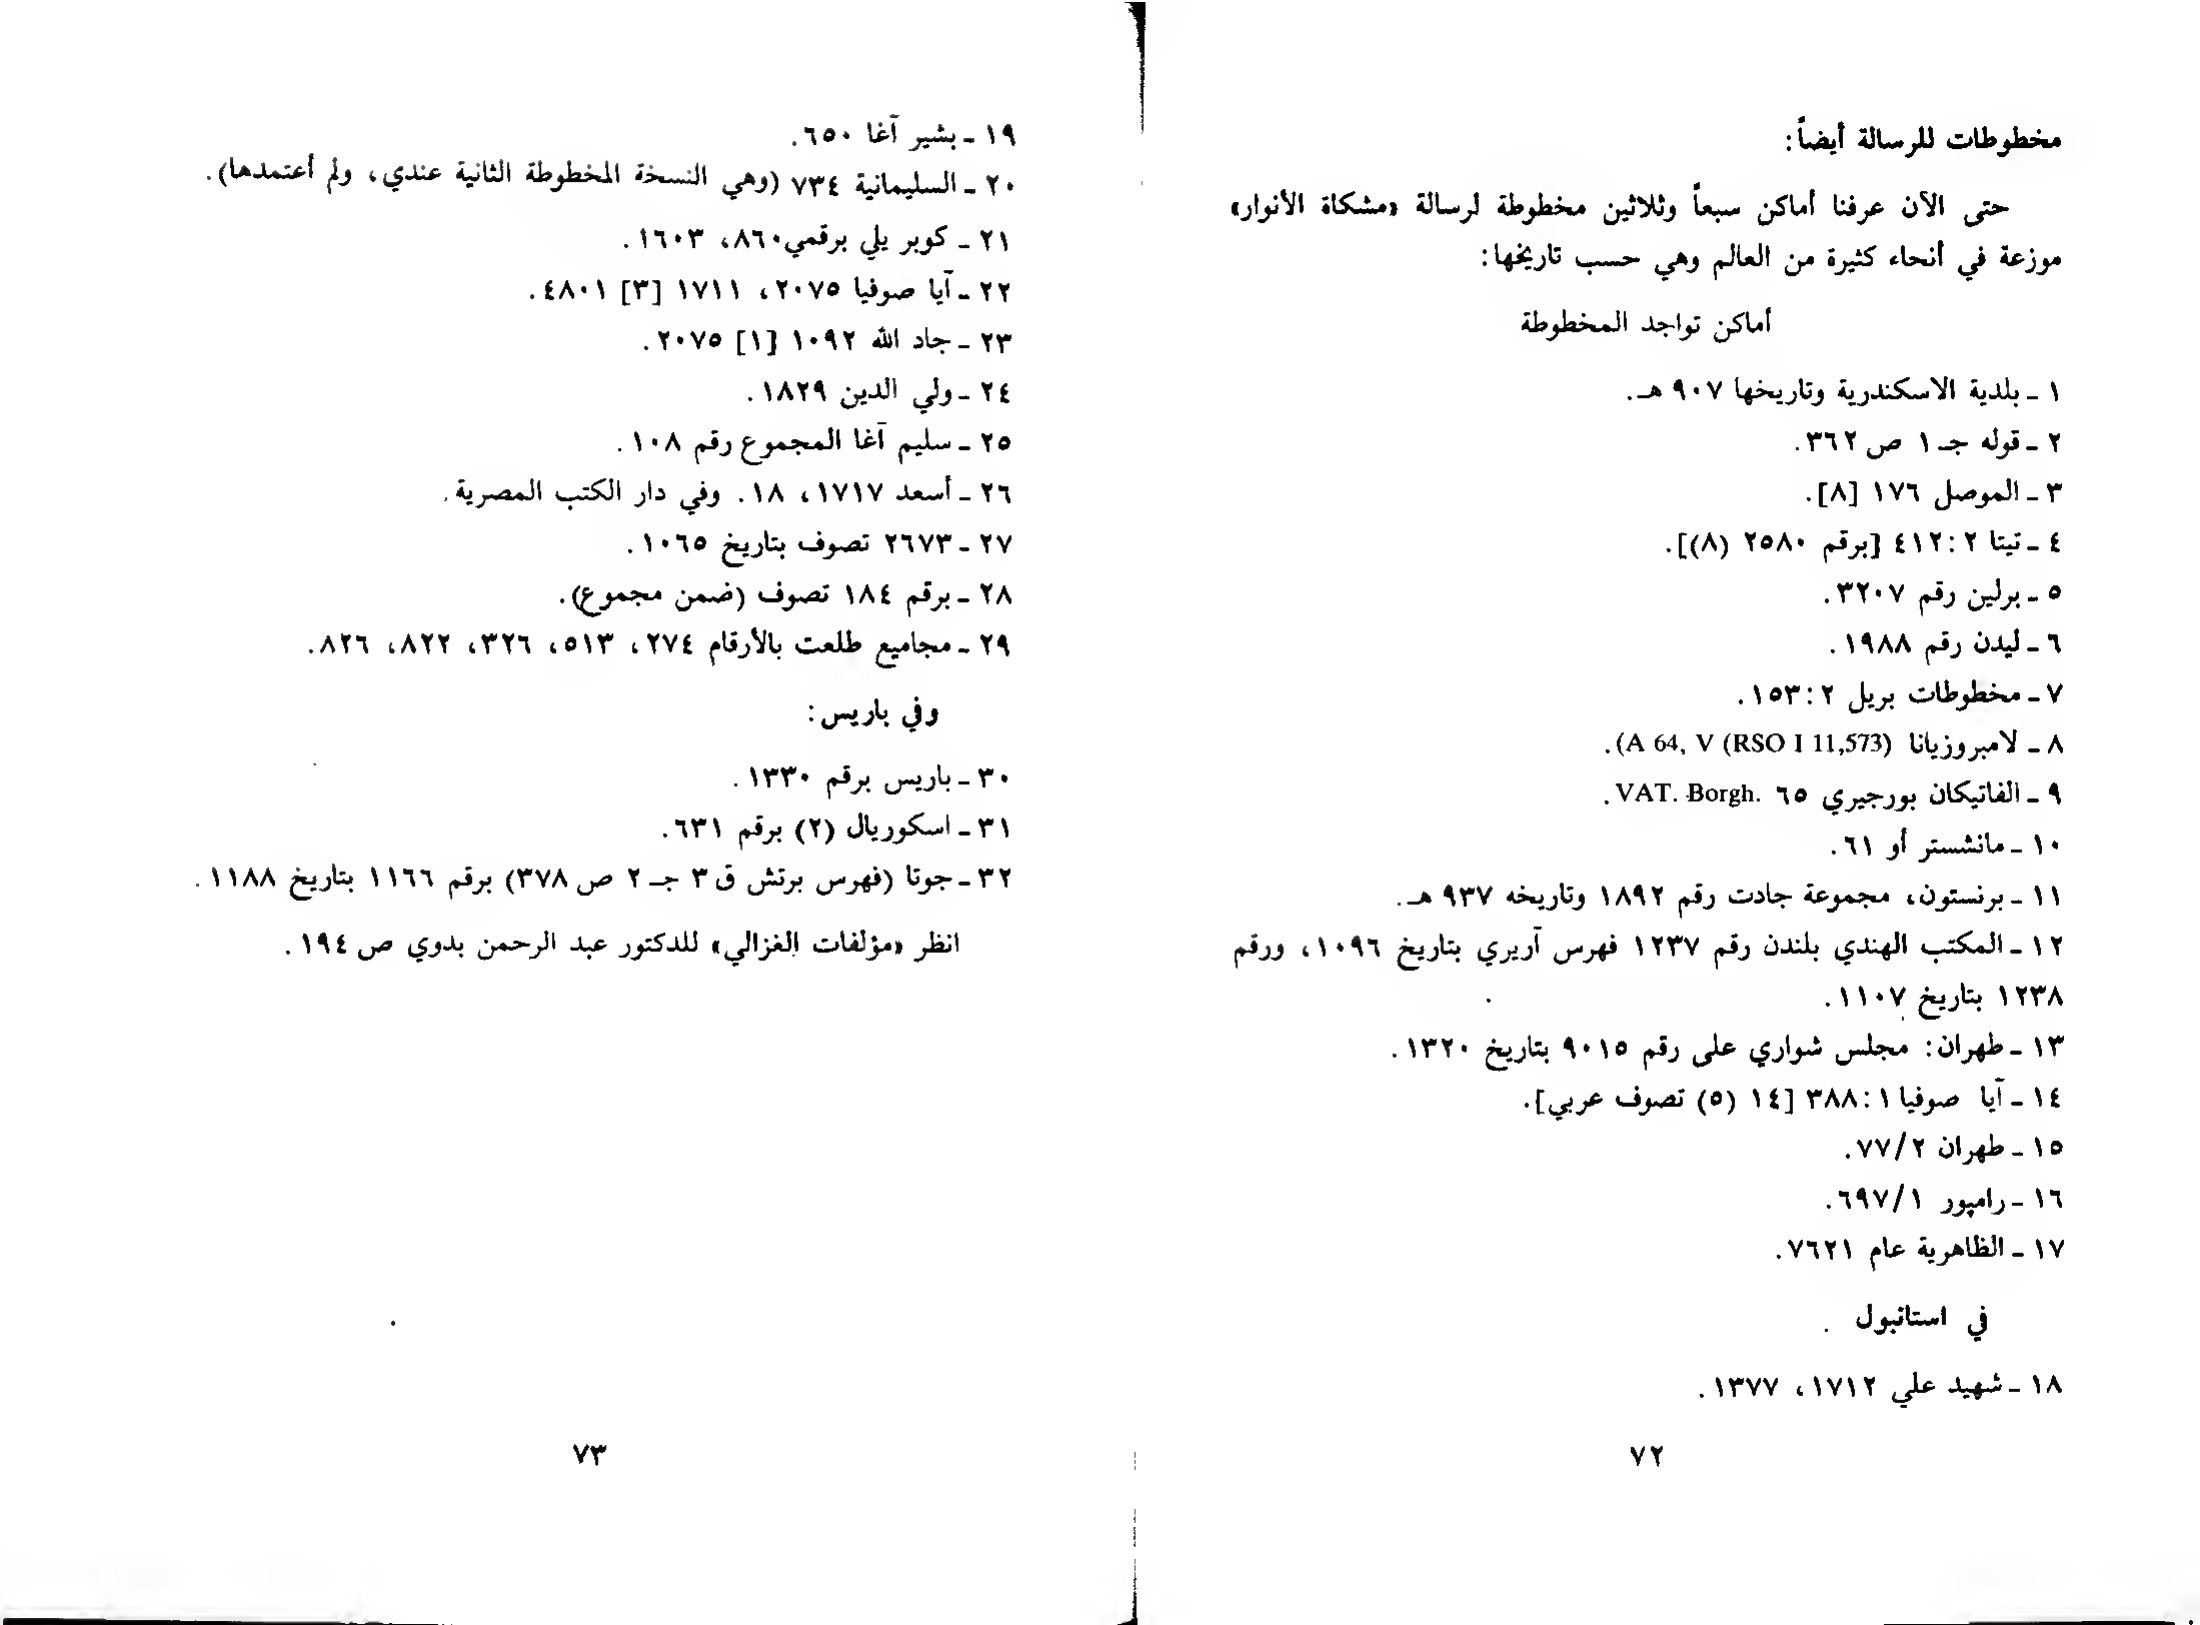 مخطوطات للرسالة أيضاً:
حتى الآن عرفنا أماكن سبعاً وثلاثين مخطوطة لرسالة «مشكاة الأنوار»
موزعة في أنحاء كثيرة من العالم وهي حسب تاريخها:
أماكن تواجد المخطوطة
١ ـ بلدية الاسكندرية وتاريخها ٩٠٧ هـ.
٢ ـ قوله جـ ١ ص ٣٦٢.
٣ ـ الموصل ١٧٦ [٨].
٤ ـ تيتا ٢: ٤١٢ [برقم ٢٥٨٠ (٨)].
٥ ـ برلين رقم ٣٢٠٧.
٦ ـ ليدن رقم ١٩٨٨.
٧ ـ مخطوطات بريل ٢: ١٥٣.
٨ ـ لامبروزيانا (A 64, V (RSO I 11,573).
٩ ـ الفاتيكان بورجيري ٦٥ VAT. Borgh.
١٠ ـ مانشستر أو ٦١.
١١ ـ برنستون، مجموعة جادت رقم ١٨٩٢ وتاريخه ٩٣٧ هـ.
١٢ ـ المكتب الهندي بلندن رقم ١٢٣٧ فهرس آربري بتاريخ ١٠٩٦، ورقم
١٢٣٨ بتاريخ ١١٠٧.
١٣ ـ طهران: مجلس شواري على رقم ٩٠١٥ بتاريخ ١٣٢٠.
١٤ ـ آيا صوفيا ١: ٣٨٨ [١٤ (٥) تصوف عربي].
١٥ ـ طهران ٢/ ٧٧.
١٦ ـ رامپور ١/ ٦٩٧.
١٧ ـ الظاهرية عام ٧٦٢١.
في استانبول
١٨ ـ شهيد علي ١٧١٢، ١٣٧٧.
٧٢
١٩ ـ بشير آغا ٦٥٠.
٢٠ ـ السليمانية ٧٣٤ (وهي النسخة المخطوطة الثانية عندي، ولم أعتمدها).
٢١ ـ كوبر يلي برقمي ٨٦٠، ١٦٠٣.
٢٢ ـ آيا صوفيا ٢٠٧٥، ١٧١١ [٣] ٤٨٠١.
٢٣ ـ جاد الله ١٠٩٢ [١] ٢٠٧٥.
٢٤ ـ ولي الدين ١٨٢٩.
٢٥ ـ سليم آغا المجموع رقم ١٠٨.
٢٦ ـ أسعد ١٧١٧، ١٨. وفي دار الكتب المصرية.
٢٧ ـ ٢٦٧٣ تصوف بتاريخ ١٠٦٥.
٢٨ ـ برقم ١٨٤ تصوف (ضمن مجموع).
٢٩ ـ مجاميع طلعت بالأرقام ٢٧٤، ٥١٣، ٣٢٦، ٨٢٢، ٨٢٦.
وفي باريس:
٣٠ ـ باريس برقم ١٣٣٠.
٣١ ـ اسكوريال (٢) برقم ٦٣١.
٣٢ ـ جوتا (فهرس برتش ق ٣ جـ ٢ ص ٣٧٨) برقم ١١٦٦ بتاريخ ١١٨٨.
انظر «مؤلفات الغزالي» للدكتور عبد الرحمن بدوي ص ١٩٤.
٧٣